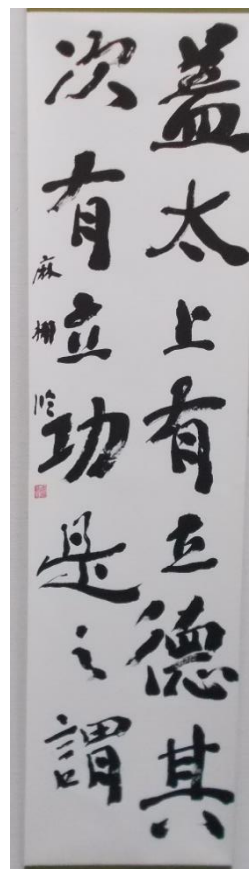 蓋太上有立德其
次有立功是之謂
麻　　臨